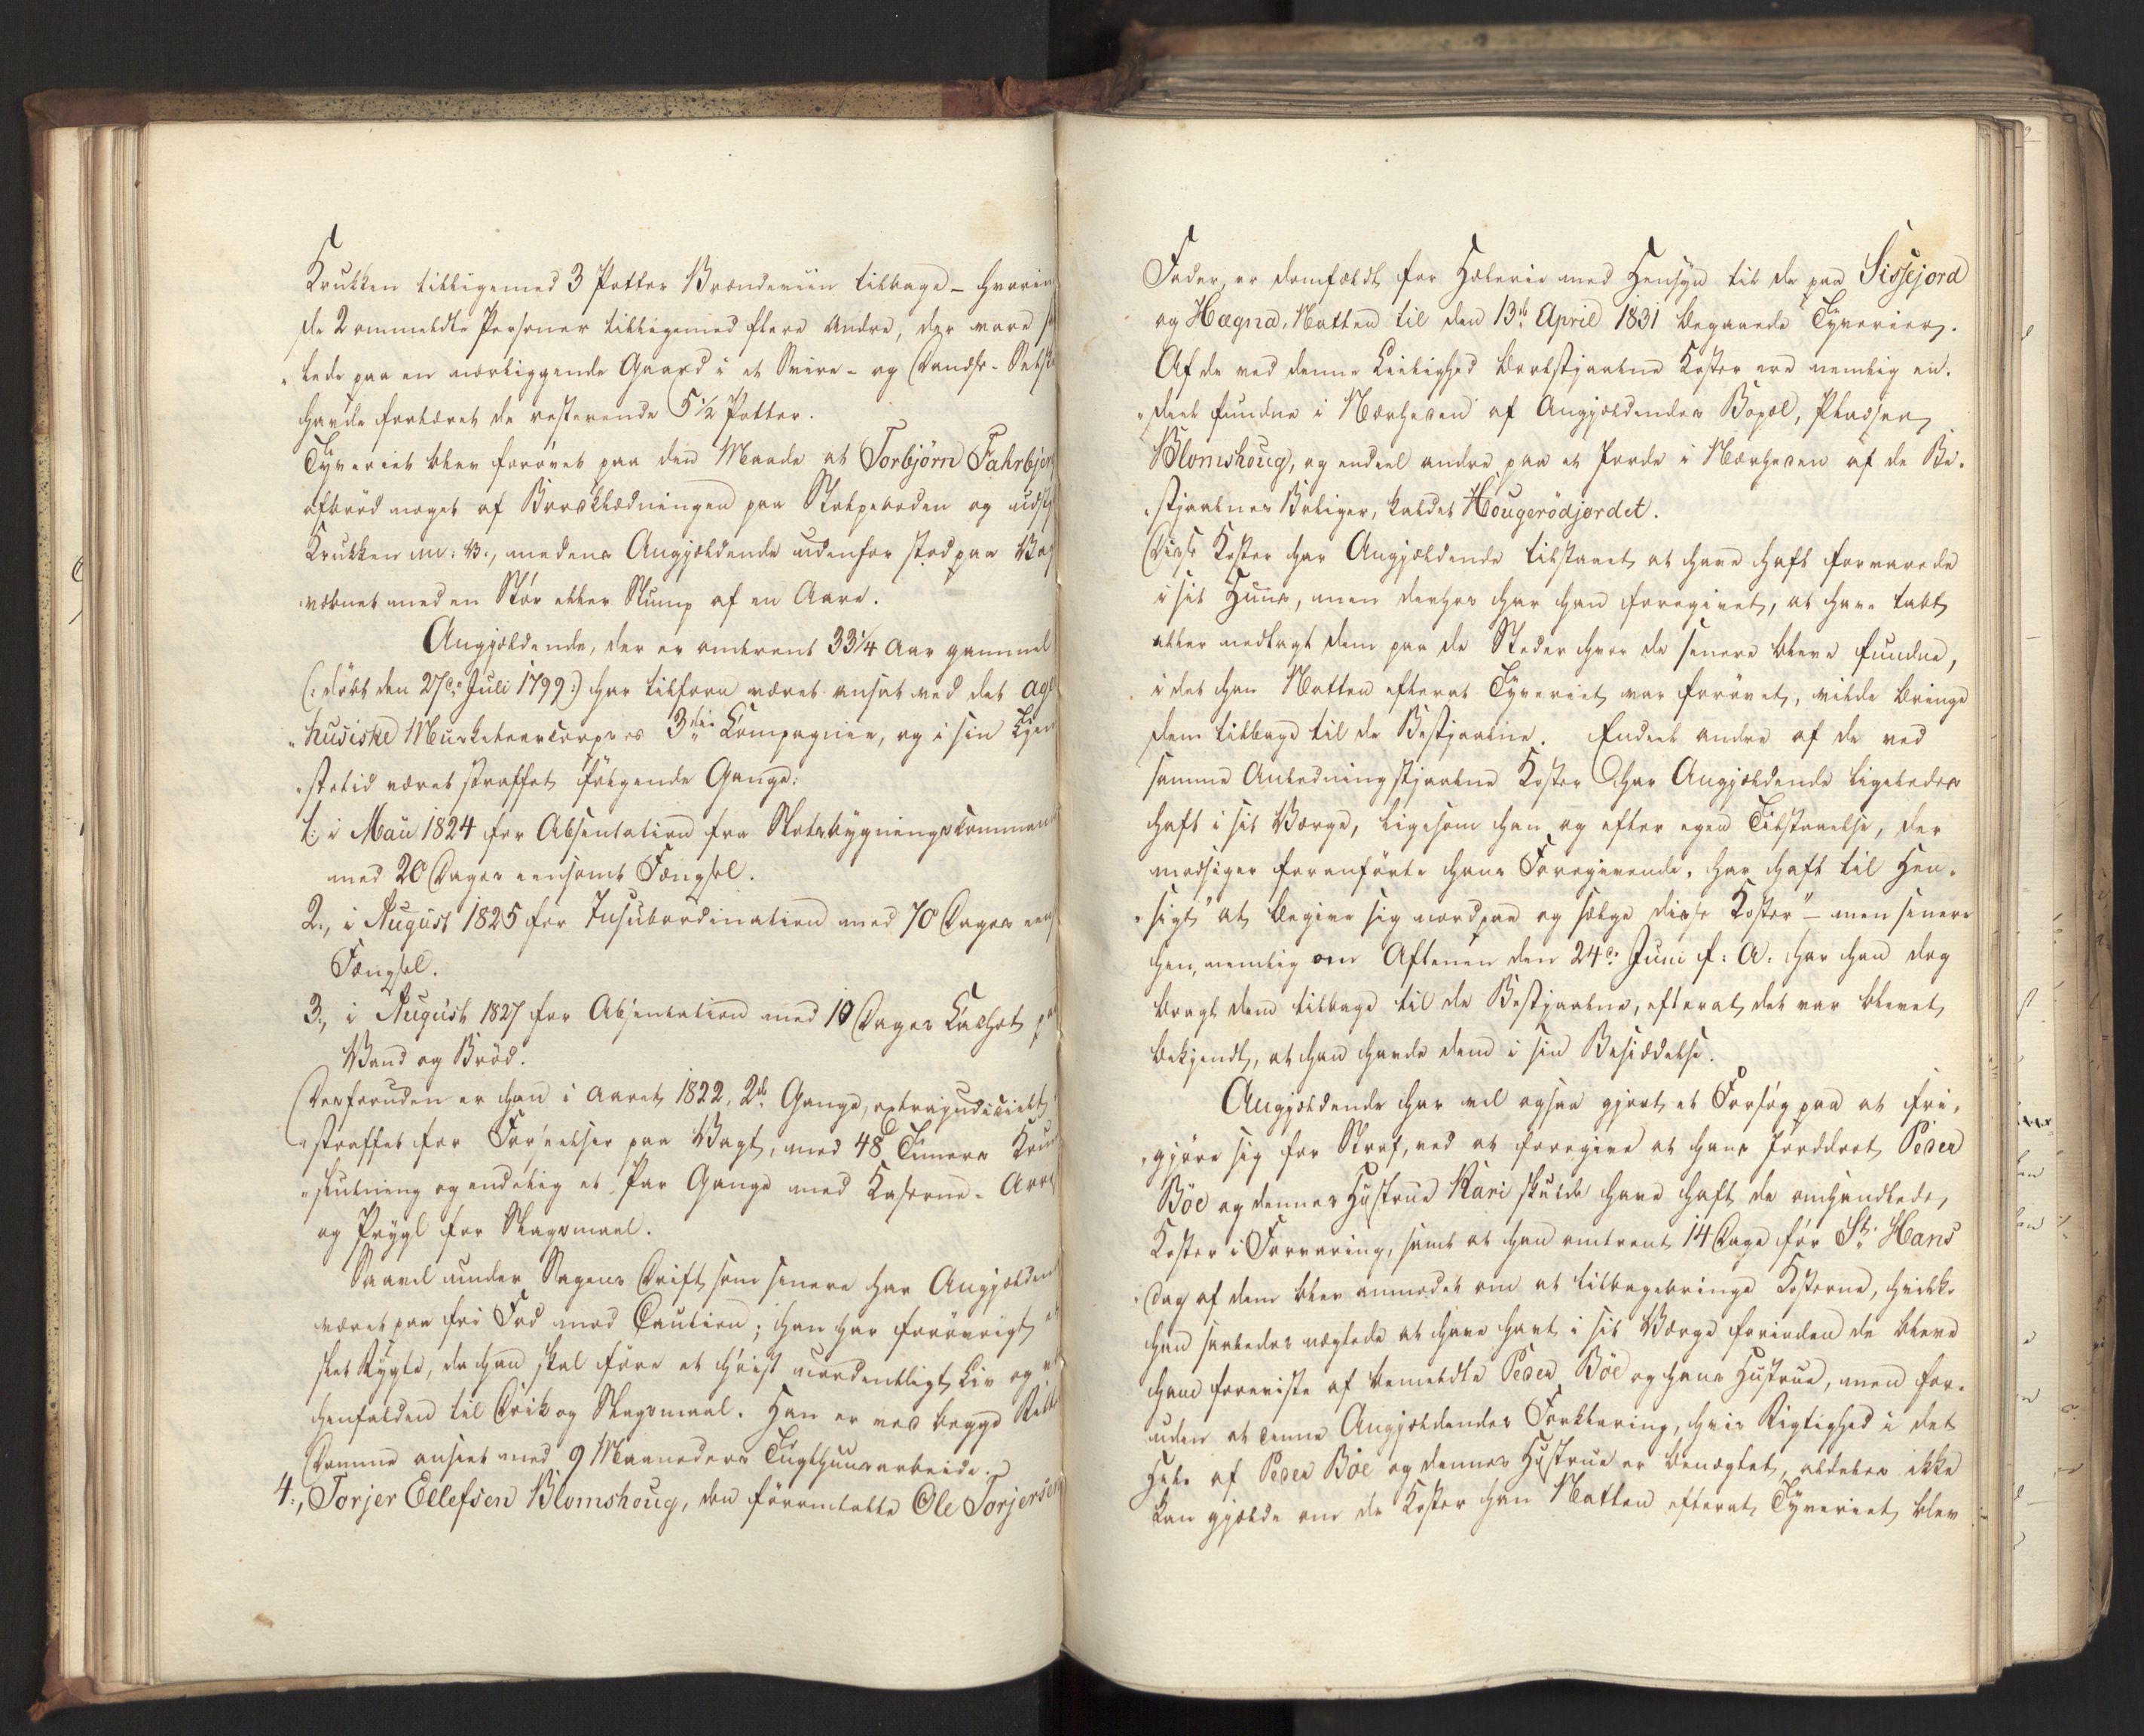 Krukken tilligemed 3 Potter Brændeviin tilbage - hvorim
de 2 ommeldte Personer tilligemed flere Andre, der vare
lede paa en nærliggende Gaard i et Svire- og Dandse-Selsk
havde fortæret de resterende 5 1/2 Potter.
Tyveriet blev forøvet paa den Maade at Torbjörn Fahrbjer
afbrød noget af Bordklædningen paa Stolpeboden og udst
Krukken m: V:, medens Angjeldende udenfor stod paa Va
væbnet med en Stör eller Stump af en Aare.
Angjeldende, der er omtrent 33 1/4 Aar gammel
(: döbt den 27de Juli 1799 :) har tilforn været ansat ved det Agers
„husiske Musketeercorpses 3die Kompagnie, og i sin Tjen
„stetid været straffet følgende Gange:
1:, i Maii 1824 for Absentation fra Slotsbygningscommand
med 20 Dages eensomt Fængsel.
2:, i August 1825 for Insubordination med 70 Dages een
Fængsel.
3:, i August 1827 for Absentation med 10 Dages Kachot p
Vand og Bröd.
Desforuden er han i Aaret 1822, 2de Gange, extrajudicielt
„straffet for Forseelser paa Vagt, med 48 Timers Krum
„slutning og endelig et Par Gange med Kaserne-Arre
og Prygl for Slagsmaal.
Saavel under Sagens Drift som senere har Angjelden
været paa fri Fod mod Caution; han har forøvrigt et
slet Rygte, da han skal före et höist uordentligt Liv og
henfalden til Drik og Slagsmaal. Han er ved begge Rette
Domme anseet med 9 Maaneders Tugthuusarbeide.
4:, Torjer Ellefsen Blomshoug, den förommeldte Ole Torjersen
Fader, er domfældt for Hæleri med Hensyn til de paa Sissejord
og Hægna, Natten til den 13de April 1831 begaaede Tyverier.
Af de ved denne Leilighed bortstjaalne Koster ere nemlig en-
„deel fundne i Nærheden af Angjeldendes Bopæl, Pladsen
Blomshoug, og endeel andre paa et Jorde i Nærheden af de Be-
„stjaalnes Boliger, kaldet Hougerödjordet.
Disse Koster har Angjeldende tilstaaet at have haft forvarede
i sit Huus, men derhos har han foregivet, at have tabt
eller nedlagt dem paa de Steder hvor de senere bleve fundne,
i det han Natten efterat Tyveriet var forøvet, vilde bringe
dem tilbage til de Bestjaalne. Endeel andre af de ved
samme Anledning stjaalne Koster har Angjeldende ligeledes
haft i sit Værge, ligesom han og efter egen Tilstaaelse, der
modsiger foranførte hans Foregivende, har haft til Hen-
„sigt „at begive sig nordpaa og sælge disse Koster" - men senere
hen, nemlig om Aftenen den 24de Juni f: A: har han dog
bragt dem tilbage til de Bestjaalne, efterat det var blevet
bekjendt, at han havde dem i sin Besiddelse.
Angjeldende har vel ogsaa gjort et Forsög paa at fri-
„gjöre sig for Straf, ved at foregive at hans Jorddrot Peder
Böe og dennes Hustrue Kari skulde have haft de omhandlede
Koster i Forvaring, samt at han omtrent 14 Dage för St. Hans
Dag af dem blev anmodet om at tilbagebringe Kosterne, hvilke
han saaledes nægtede at have havt i sit Værge forinden de bleve
ham foreviste af bemeldte Peder Böe og hans Hustrue, men for-
uden at denne Angjeldendes Forklaring, hvis Rigtighed i det
Hele af Peder Böe og dennes Hustrue er benægtet, aldeles ikke
kan gjelde om de Koster han Natten efterat Tyveriet blev